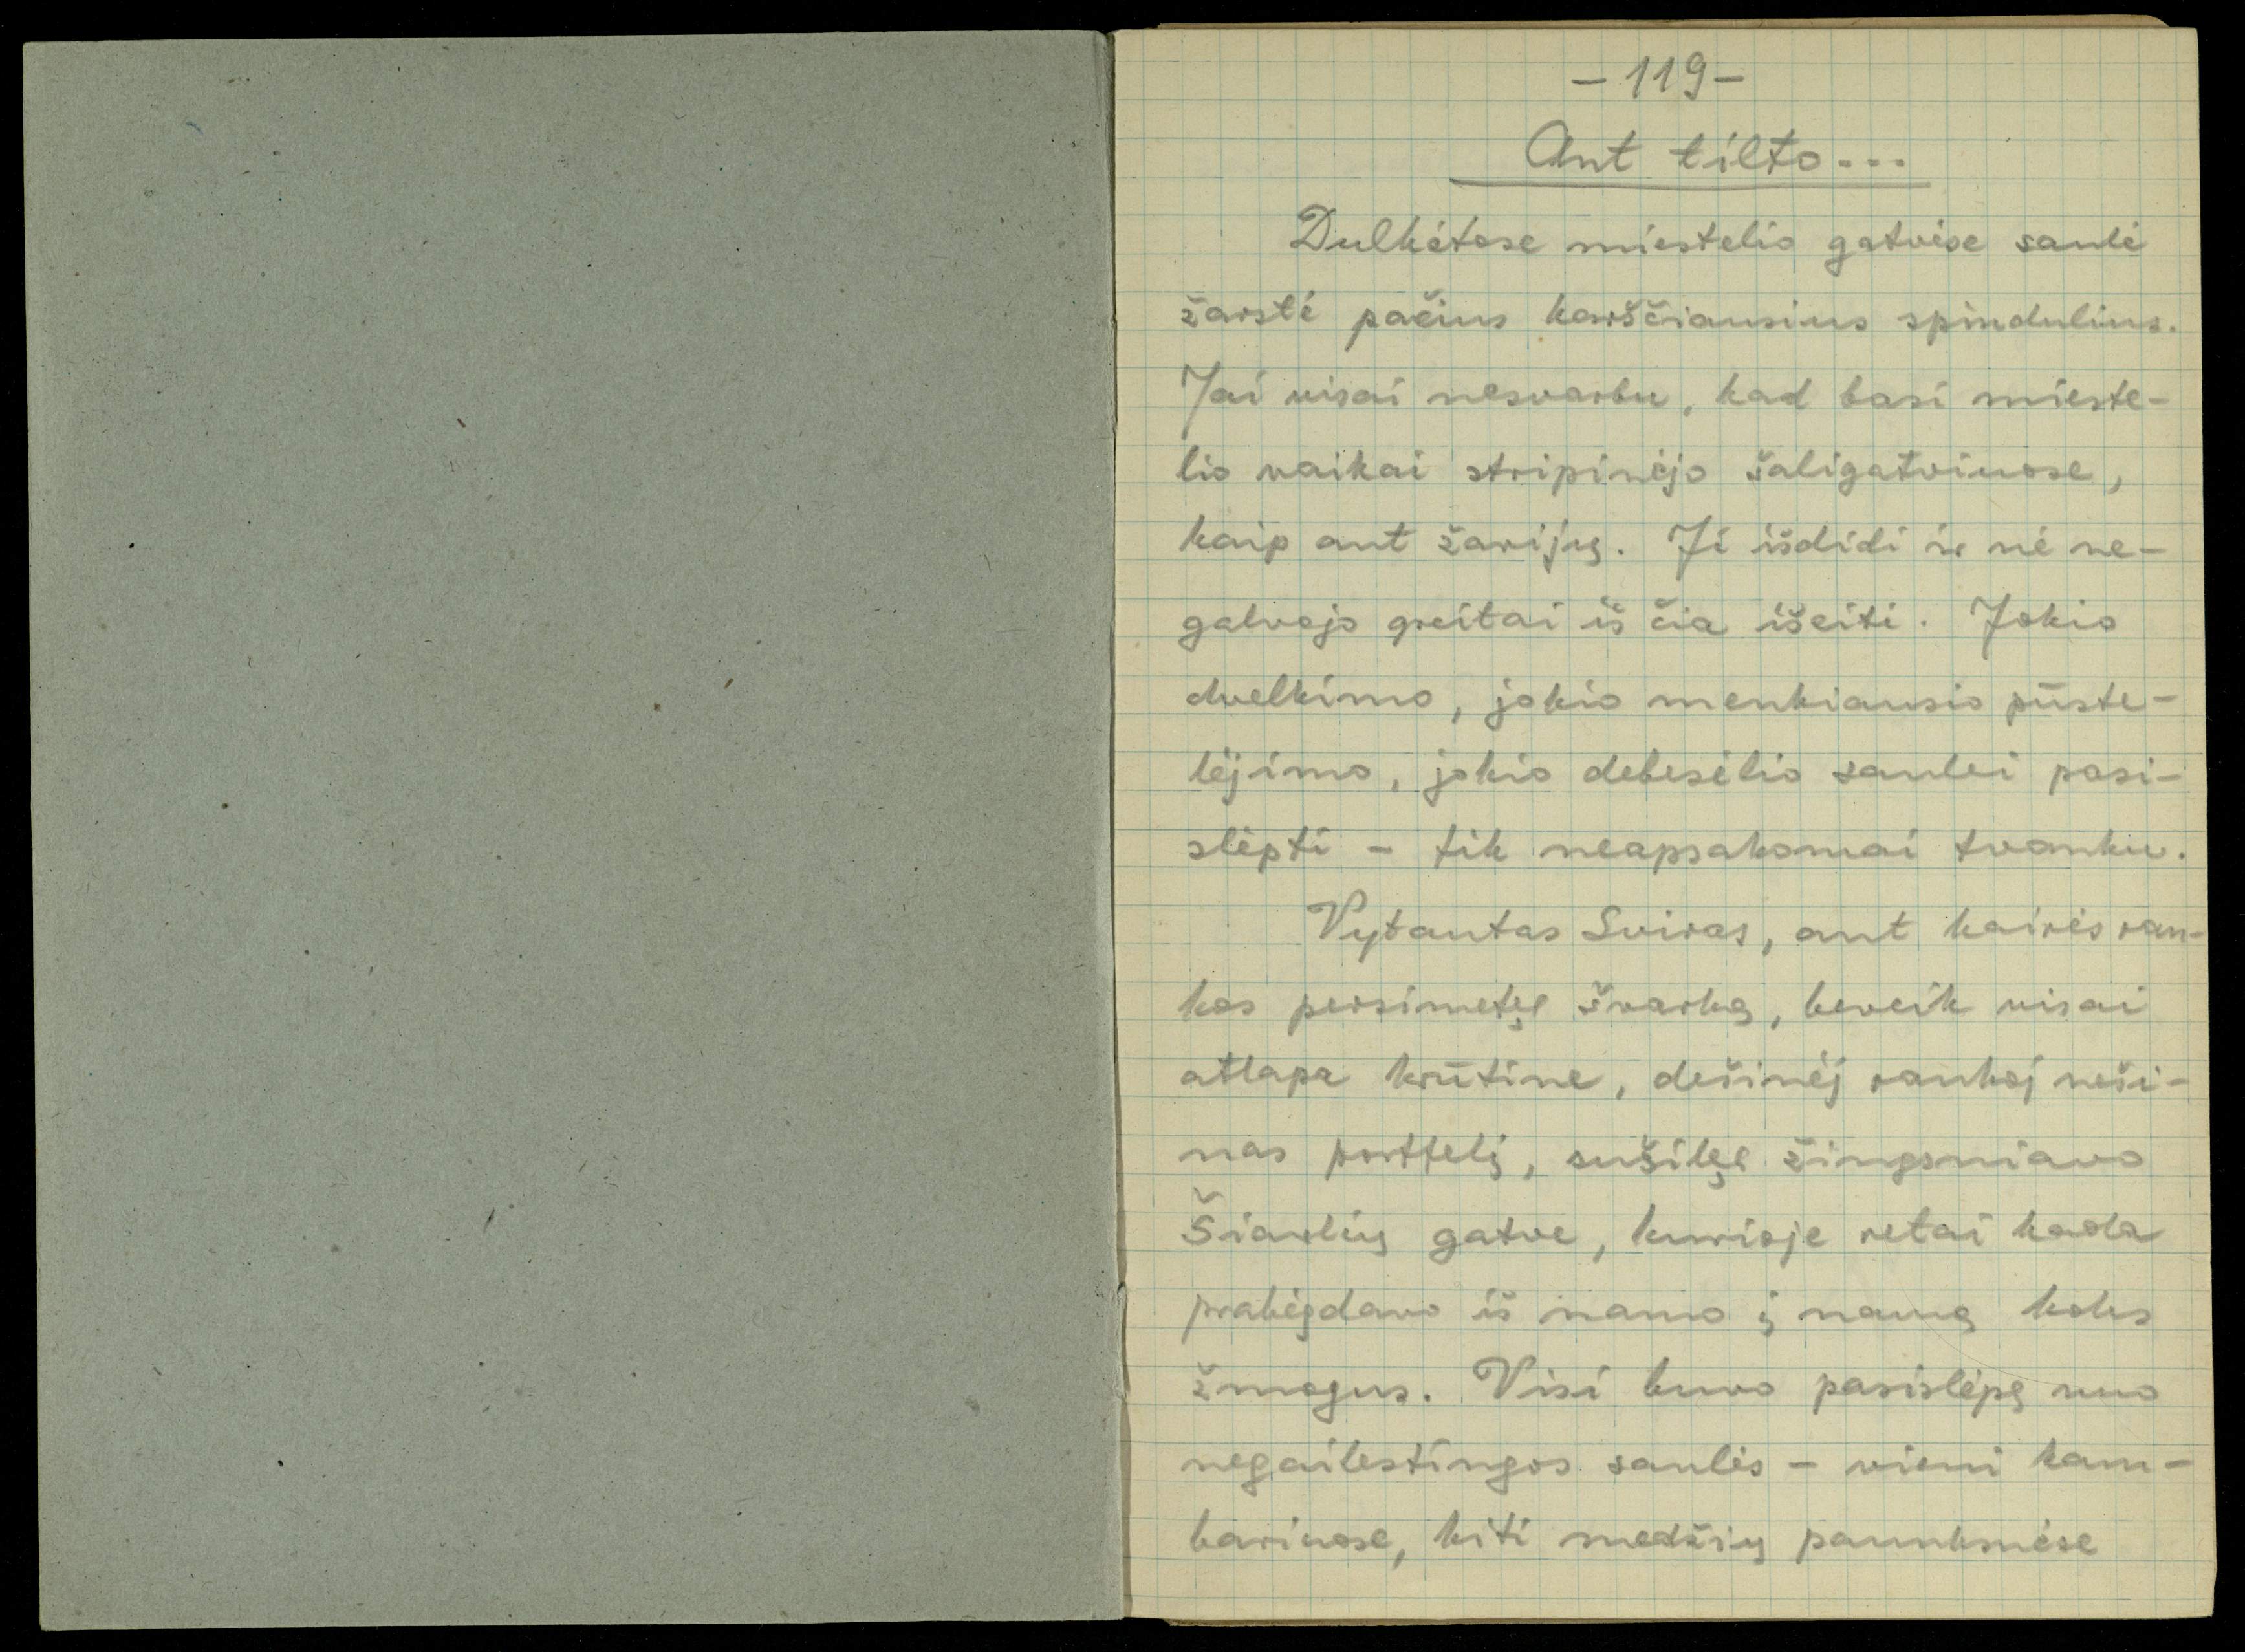 - 119 -
Ant tilto...
Dulkėtose miestelio gatvėse saulė
žarstė pačius karščiausius spindulius.
Jai visai nesvarbu, kad basi mieste-
lio vaikai stripinėjo šaligatviuose,
kaip ant žarijų. Ji išdidi ir nė ne-
galvojo greitai iš čia išeiti. Jokio
dvelkimo, jokio menkiausio pūste-
lėjimo, jokio debesėlio saulei pasi-
slėpti - tik neapsakomai tvanku.
Vytautas Sviras, ant kairės ran-
kos persimetęs švarką, beveik visai
atlapa krūtine, dešinėj rankoj neši-
nas portfelį, sušilęs žingsniavo
Šiaulių gatve, kurioje retai kada
prabėgdavo iš namo į namą koks
žmogus. Visi buvo pasislėpę nuo
negailestingos saulės - vieni kam-
bariuose, kiti medžių paunksnėse